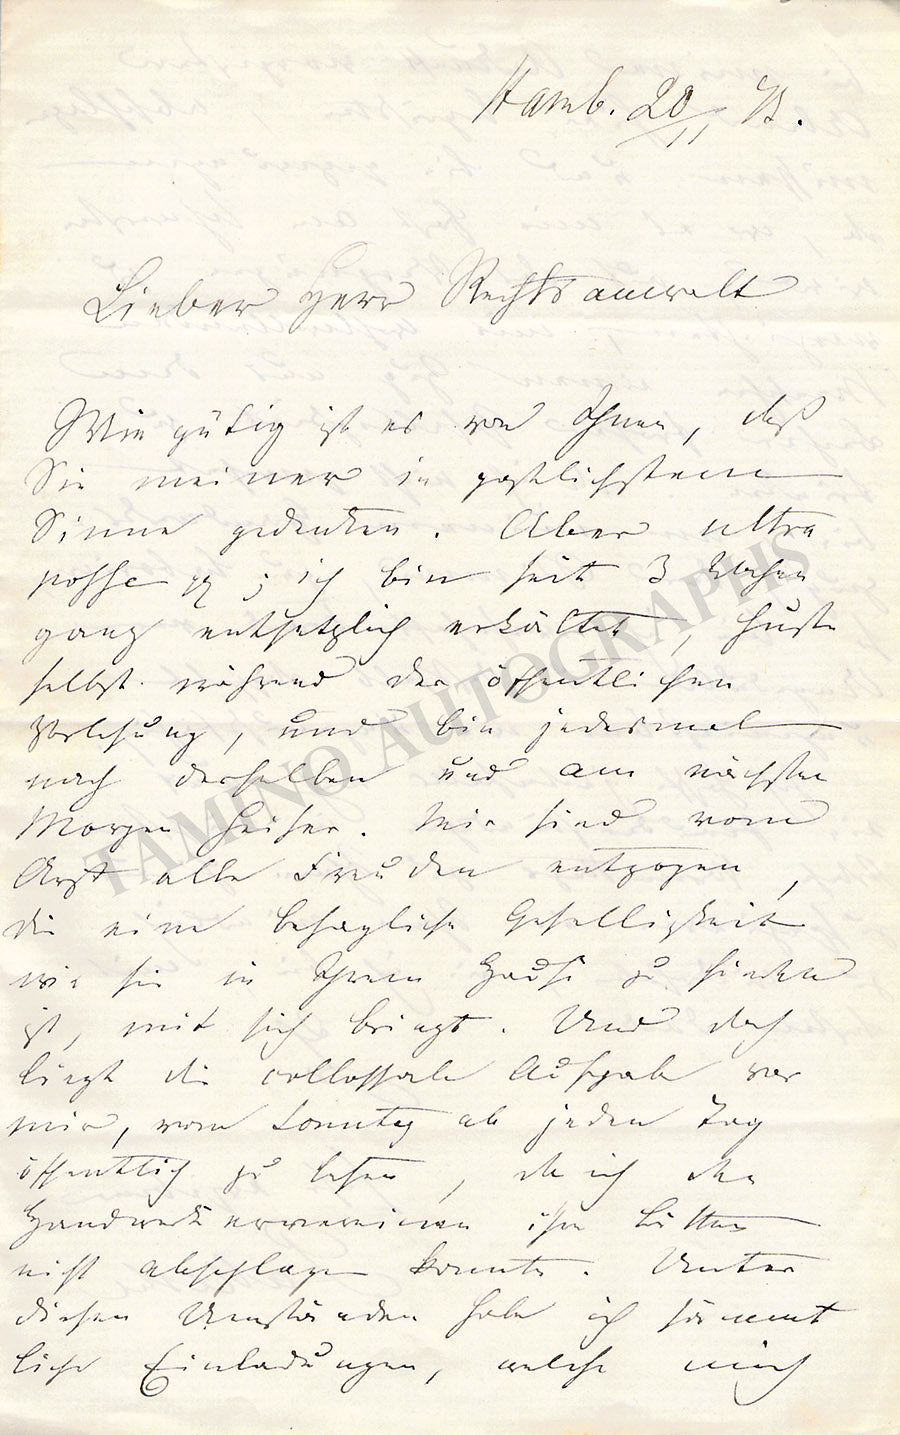 Hamb. 20/11 75.
Lieber Herr Rechtsanwalt
Wie gütig ist es von Ihnen, daß
Sie meiner in gastlichstem
Sinne gedenken. Aber ultra
posse pp; ich bin seit 3 Wochen
ganz entsetzlich erkältet, huste
selbst während der öffentlichen
Vorlesung, und bin jedesmal
nach derselben und am nächsten
Morgen heiser. Mir sind vom
Arzt alle Freuden entzogen,
die eine behagliche Geselligkeit
wie sie in Ihrem Hause zu finden
ist, mit sich bringt. Und doch
liegt die collossale Aufgabe vor
mir, vom Sonntag ab jeden Tag
öffentlich zu lesen, da ich den
Handwerkervereinen ihre Bitten
nicht abschlagen konnte. Unter
diesen Umständen habe ich sämmt
liche Einladungen, welche mich
TAMINO AUTOGRAPHS